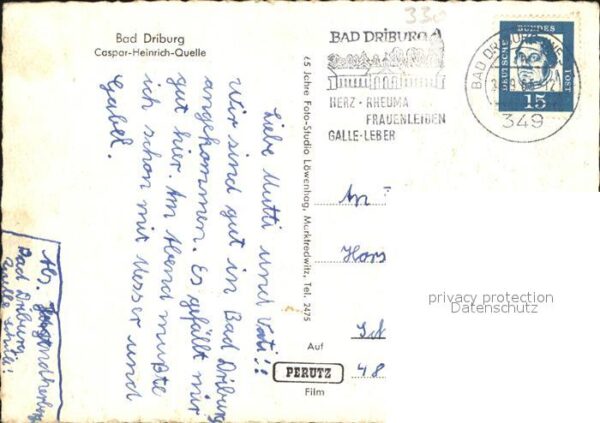 Bad Driburg
Caspar-Heinrich-Quelle
Liebe Mutti und Vati!!
Wir sind gut in Bad Driburg
angekommen. Es gefällt mir
gut hier. Am Abend mußte
ich schon mit Messer und
Gabel.
Abs. Jugendherberge
Bad Driburg
65 Jahre Foto-Studio Löwenhag, Marktredwitz, Tel. 2475
330
BAD DRIBURG
HERZ · RHEUMA
FRAUENLEIDEN
GALLE-LEBER
BAD DRIBURG
349
DEUTSCHE BUNDES POST
15
An
Hors
48
Auf
PERUTZ
Film
privacy protection
Datenschutz